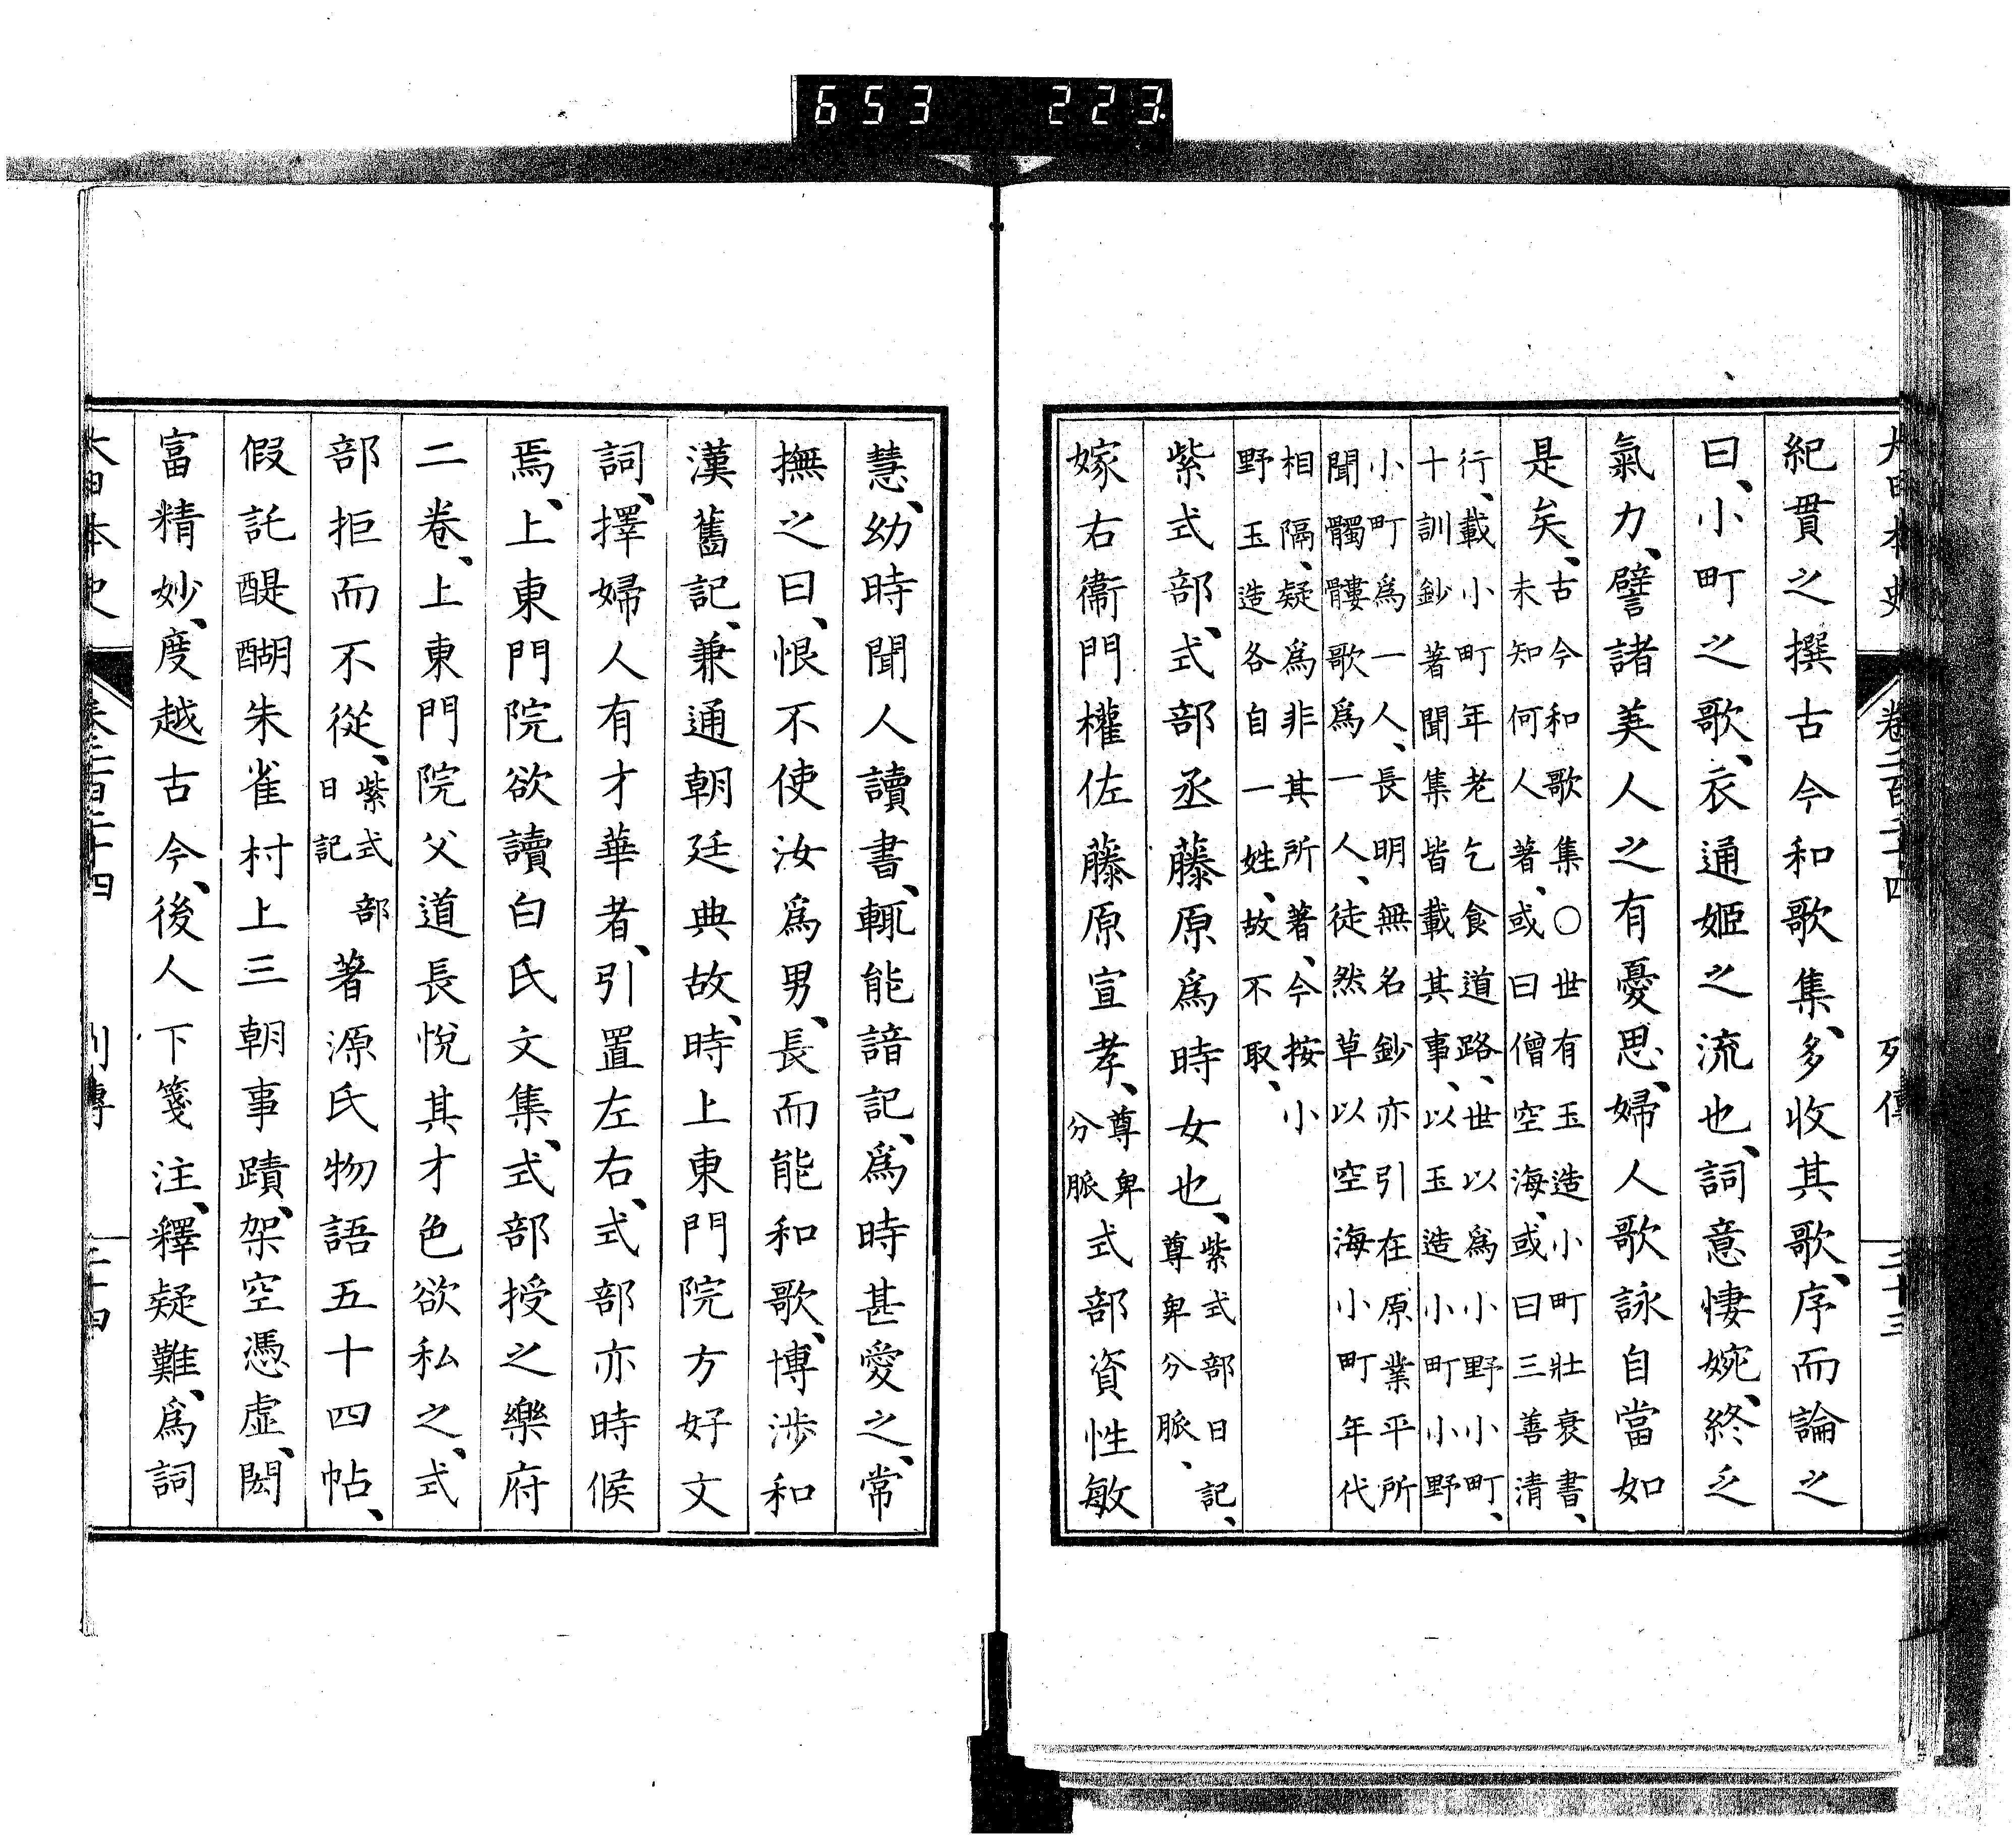 653 223
大日本史 卷二百二十四 列傳 三十三
紀貫之撰古今和歌集、多收其歌、序而論之
曰、小町之歌、衣通姬之流也、詞意悽婉、終乏
氣力、譬諸美人之有憂思、婦人歌詠自當如
是矣、古今和歌集○世有玉造小町壯衰書、
未知何人著、或曰僧空海、或曰三善清
行、載小町年老乞食道路、世以爲小野小町、
十訓鈔著聞集皆載其事、以玉造小町小野
小町爲一人、長明無名鈔亦引在原業平所
聞髑髏歌爲一人、徒然草以空海小町年代
相隔、疑爲非其所著、今按小
野玉造各自一姓、故不取、
紫式部、式部丞藤原爲時女也、紫式部日記、
尊卑分脈、
嫁右衞門權佐藤原宣孝、尊卑
分脈
式部資性敏
慧、幼時聞人讀書、輒能諳記、爲時甚愛之、常
撫之曰、恨不使汝爲男、長而能和歌、博渉和
漢舊記、兼通朝廷典故、時上東門院方好文
詞、擇婦人有才華者、引置左右、式部亦時候
焉、上東門院欲讀白氏文集、式部授之樂府
二卷、上東門院父道長悅其才色欲私之、式
部拒而不從、紫式部
日記
著源氏物語五十四帖、
假託醍醐朱雀村上三朝事蹟、架空憑虛、閎
富精妙、度越古今、後人下箋注、釋疑難、爲詞
大日本史 卷二百二十四 列傳 三十四